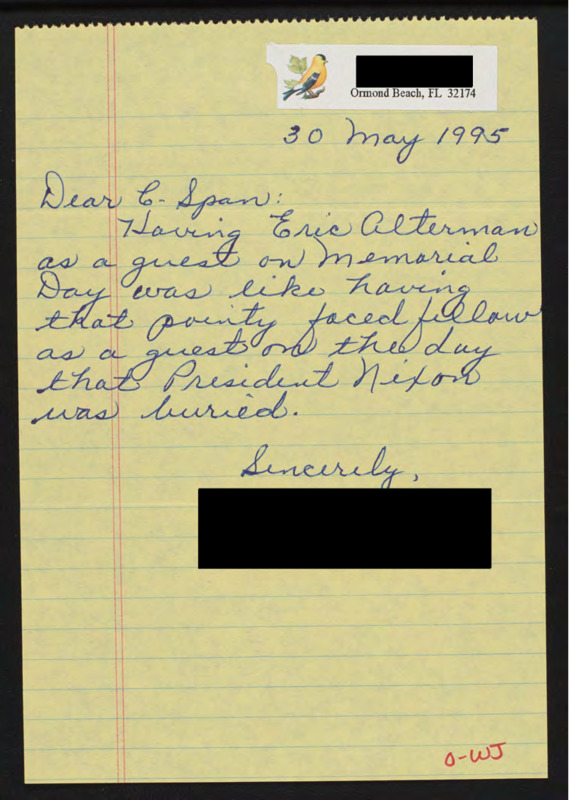 Ormond Beach, FL 32174
30 May 1995
Dear C-Span:
Having Eric Alterman
as a guest on Memorial
Day was like having
that pointy faced fellow
as a guest on the day
that President Nixon
was buried.
Sincerely,
O-WJ